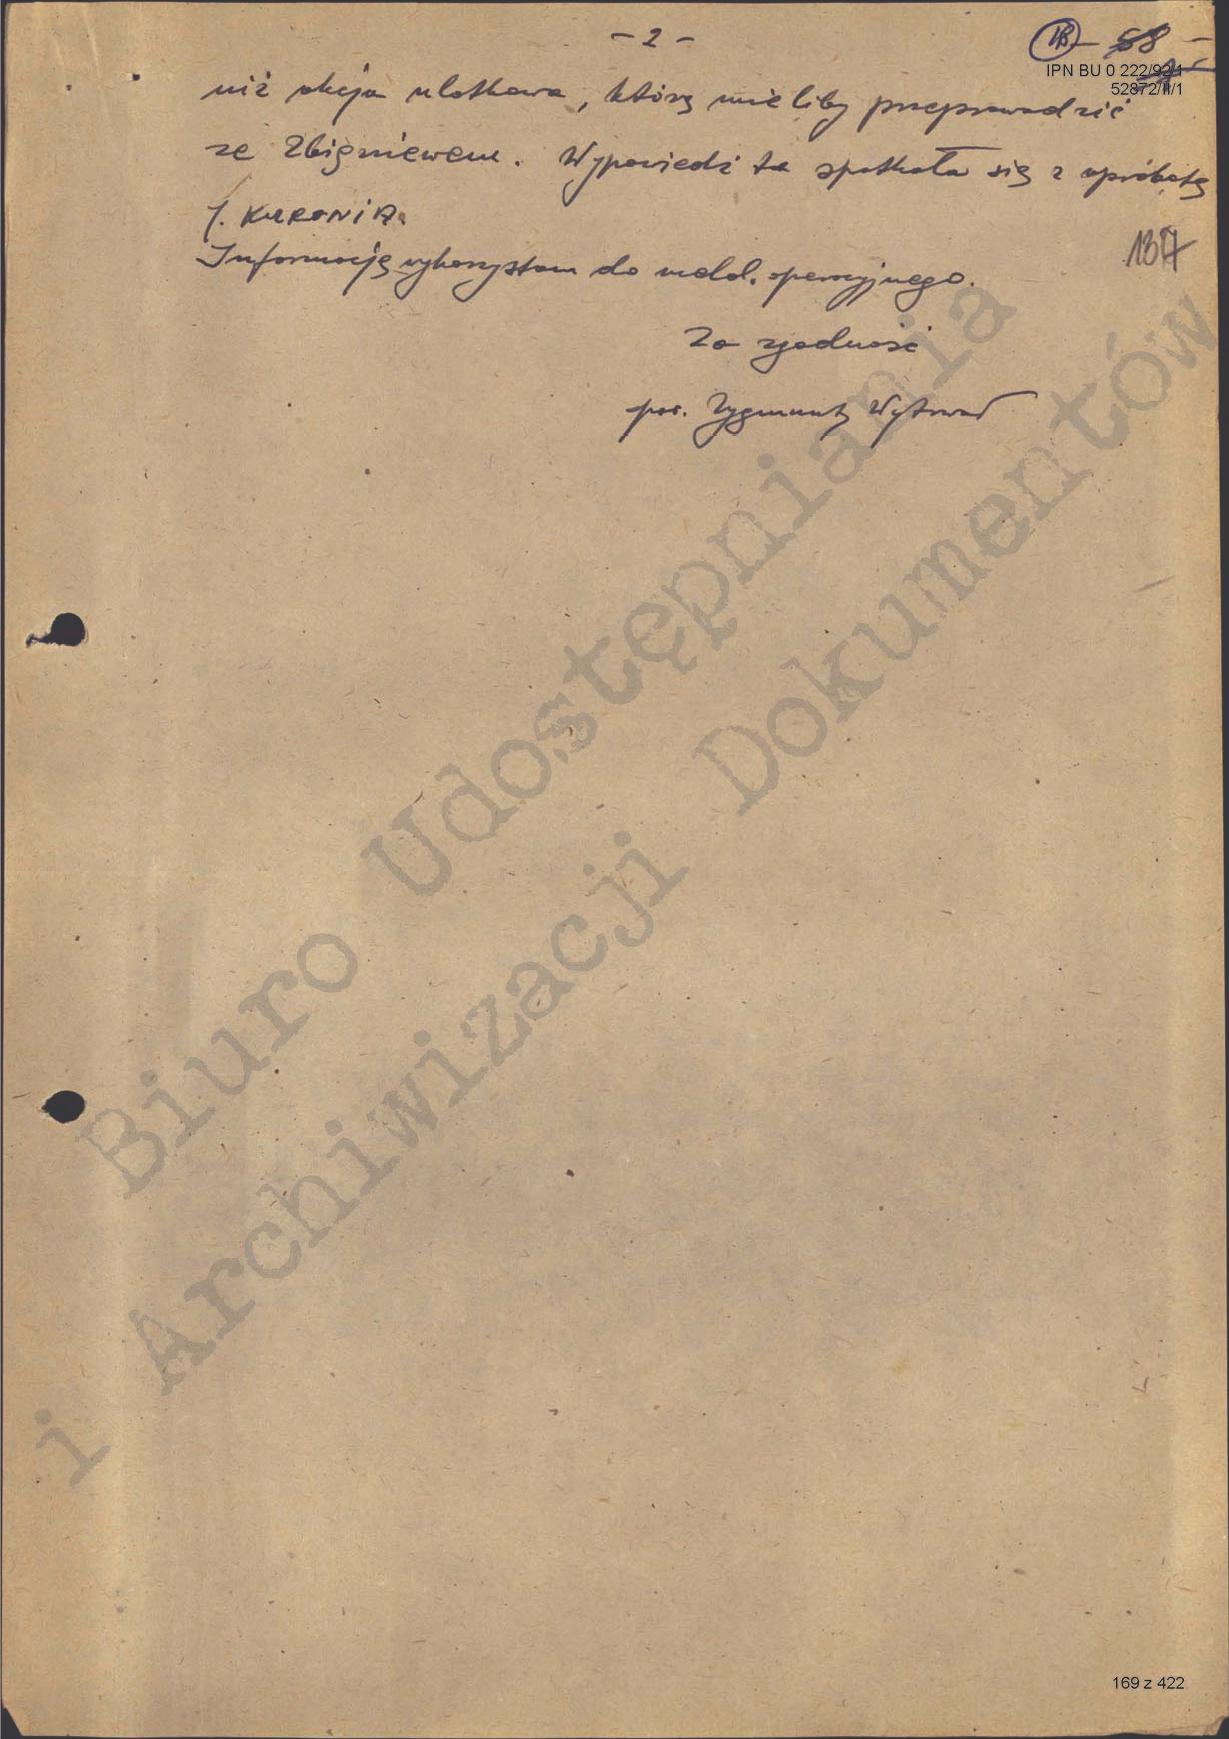 - 2 -
58 -
IPN BU 0 222/92/1
52872/II/1
niż akcja ulotkowa, którą mieliby przeprowadzić
ze Zbigniewem. Wypowiedź ta spotkała się z aprobatą
J. KURONIA.
Informację wykorzystam do meld. operacyjnego.
Za zgodność
por. Zygmunt
Biuro Udostępniania
i Archiwizacji Dokumentów
169 z 422